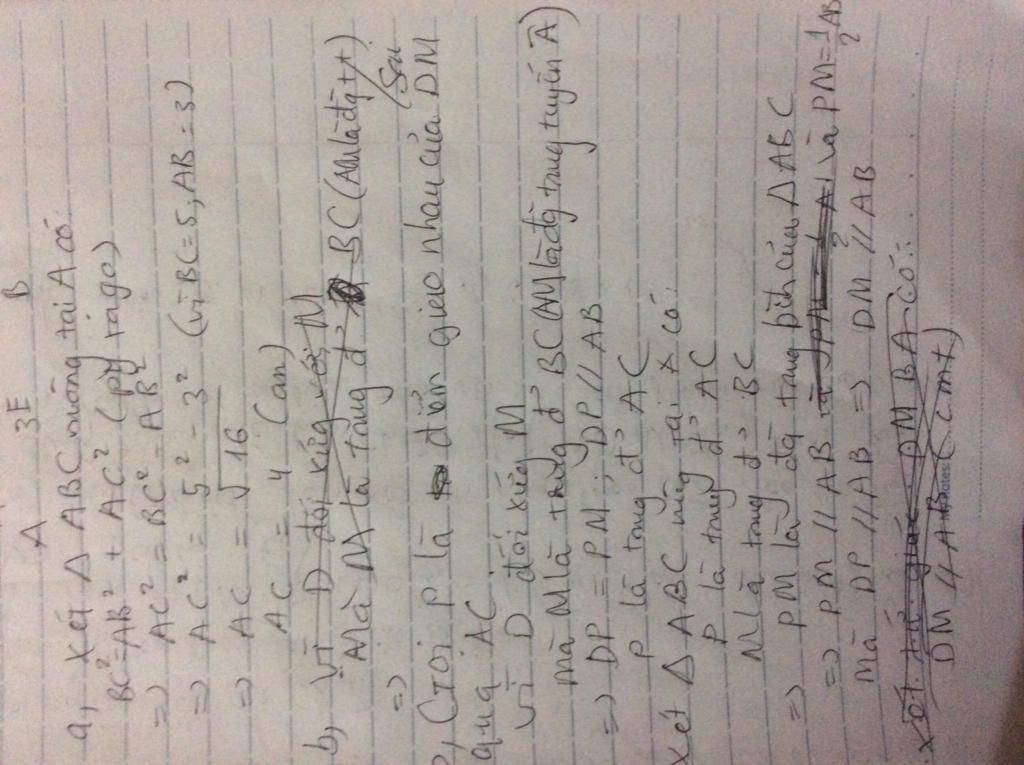 A 3E B
a, Xét Δ ABC vuông tại A có
BC² = AB² + AC² (py tago)
=> AC² = BC² - AB²
=> AC² = 5² - 3² (vì BC = 5, AB = 3)
=> AC = √16
AC = 4 (cm)
b, Vì D đối xứng với M
Mà là trung đ' BC (AM là đg tt)
=> Sai
b, Gọi P là điểm giao nhau của DM
qua AC
Vì D đối xứng M
mà M là trung đ' BC (AM là đg trung tuyến A)
=> DP = PM ; DP // AB
P là trung đ' AC
Xét Δ ABC vuông tại A có
P là trung đ' AC
M là trung đ' BC
=> PM là đg trung bình của Δ ABC
=> PM // AB và PM = 1/2 AB
Mà DP // AB => DM // AB
Xét tứ giác DM BA có:
DM // AB (cmt)
Notes: